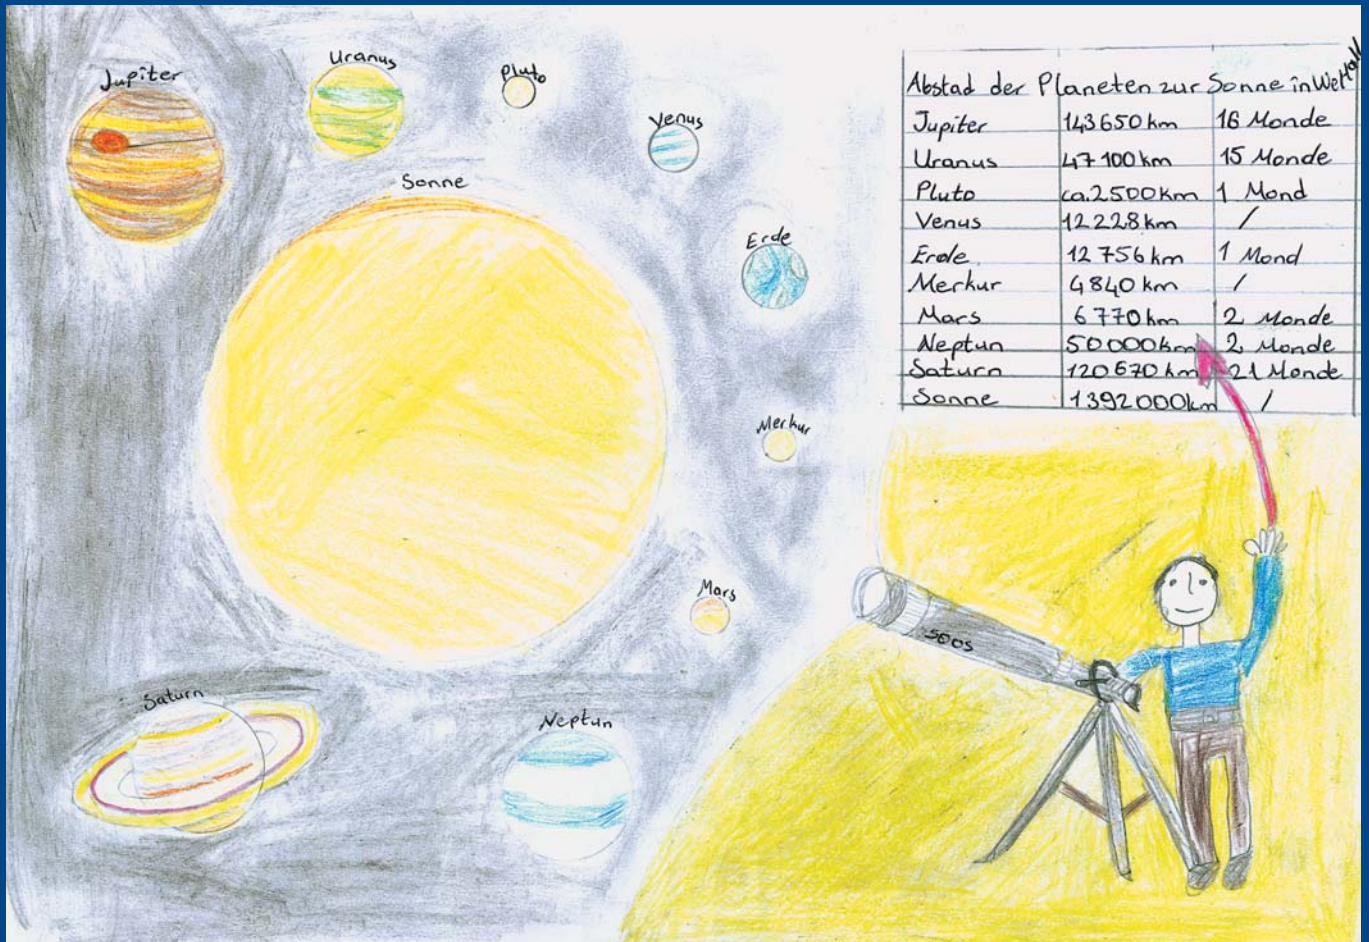 Jupiter
Uranus
Pluto
Venus
Sonne
Erde
Merkur
Mars
Saturn
Neptun
Abstad der Planeten zur Sonne in Weltall
Jupiter 143650 km 16 Monde
Uranus 47100 km 15 Monde
Pluto ca. 2500 km 1 Mond
Venus 12228 km /
Erde 12756 km 1 Mond
Merkur 4840 km /
Mars 6770 km 2 Monde
Neptun 50000 km 2 Monde
Saturn 120670 km 21 Monde
Sonne 1392000 km /